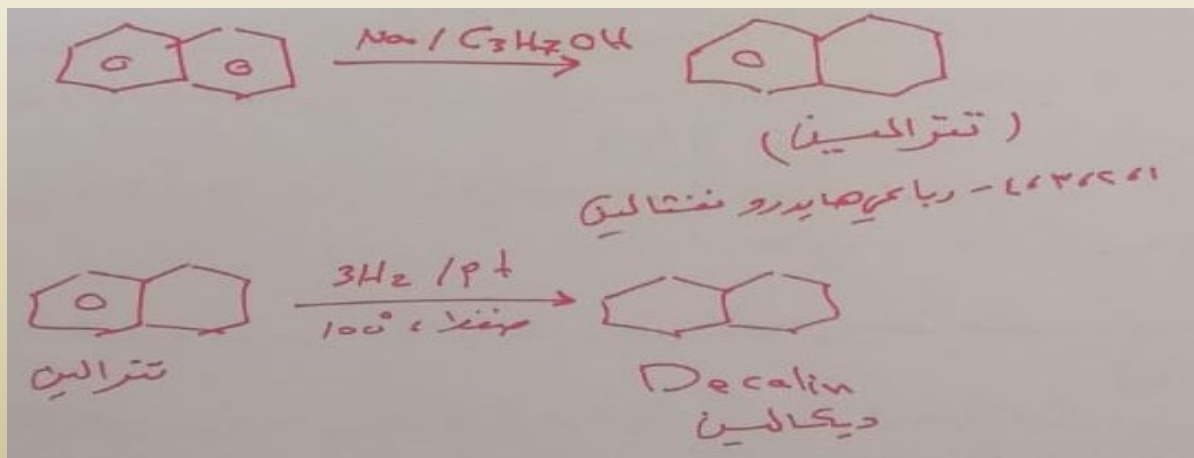 Na / C3H7OH
(تترالين)
١،٢،٣،٤ - رباعي هايدرو نفثالين
3H2 / pt
ضغط، 100°
تترالين
Decalin
ديكالين